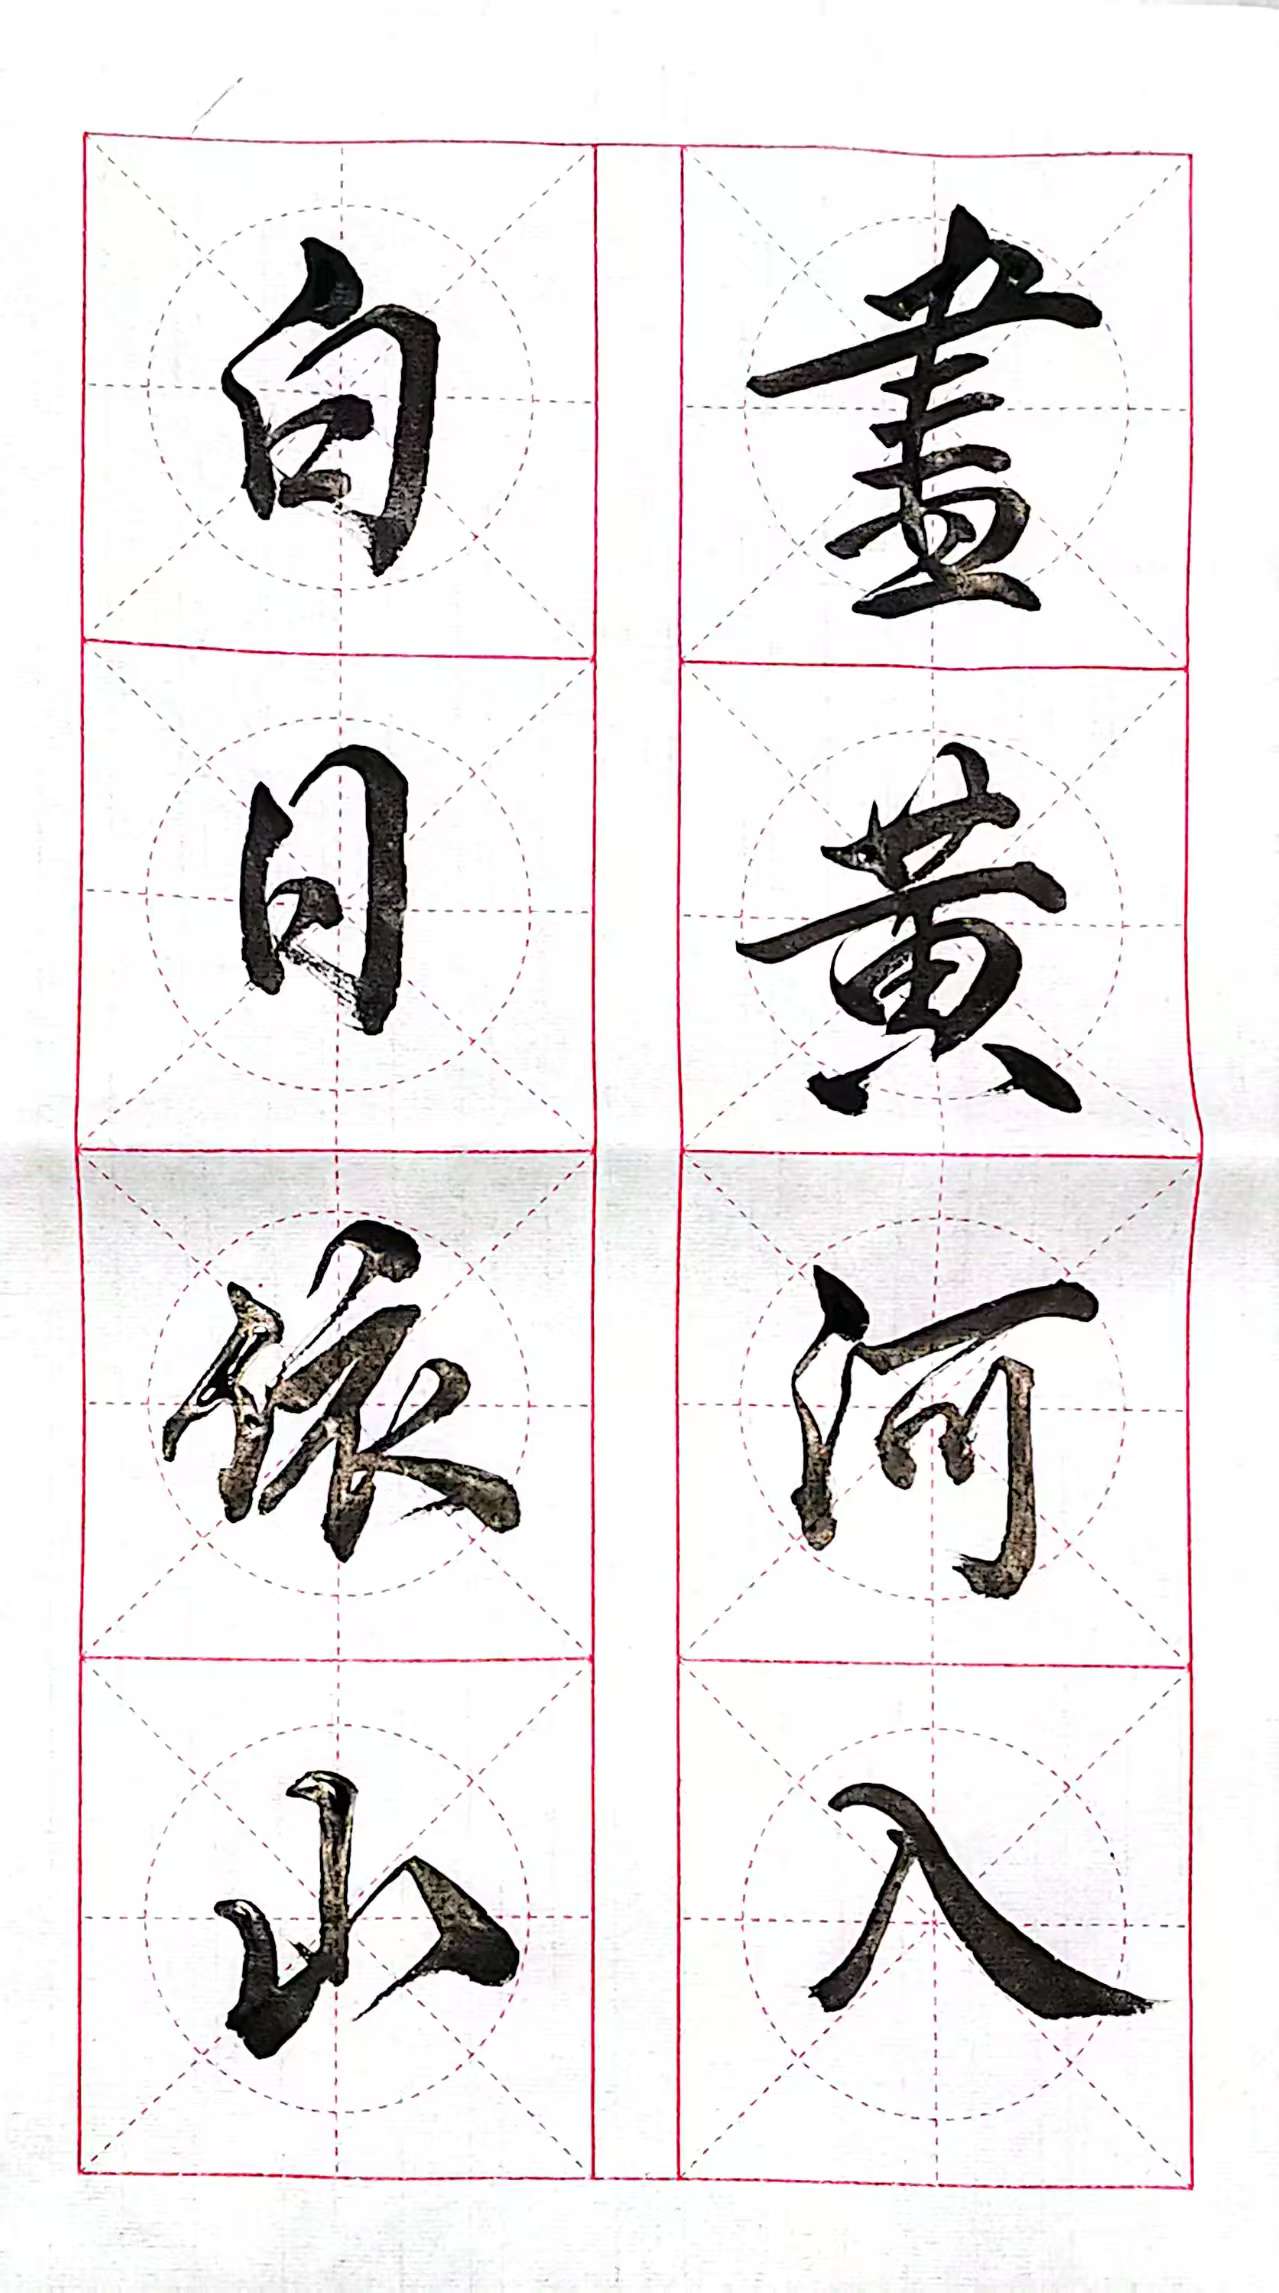 白日依山
盡黄河入